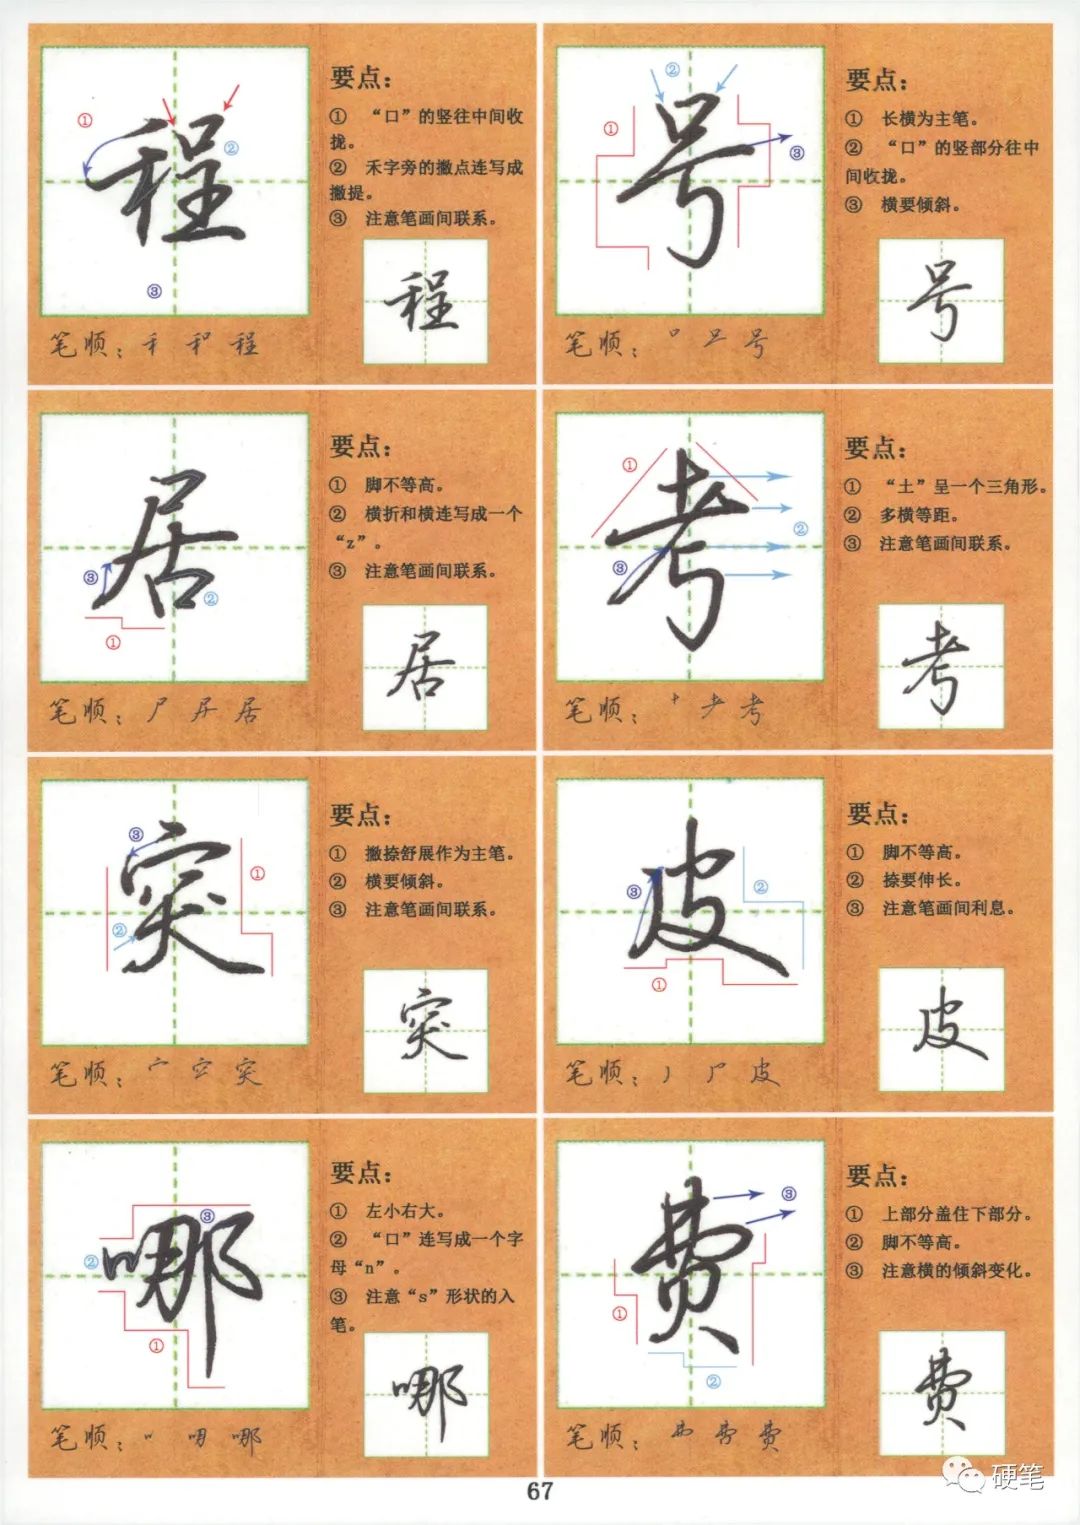 程
①
②
③
要点：
① “口”的竖往中间收
拢。
② 禾字旁的撇点连写成
撇提。
③ 注意笔画间联系。
程
笔顺：禾 和 程
号
①
②
③
要点：
① 长横为主笔。
② “口”的竖部分往中
间收拢。
③ 横要倾斜。
号
笔顺：口 号
居
①
②
③
要点：
① 脚不等高。
② 横折和横连写成一个
“z”。
③ 注意笔画间联系。
居
笔顺：尸 居
考
①
②
③
要点：
① “土”呈一个三角形。
② 多横等距。
③ 注意笔画间联系。
考
笔顺：十 耂 考
突
①
②
③
要点：
① 撇捺舒展作为主笔。
② 横要倾斜。
③ 注意笔画间联系。
突
笔顺：突
皮
①
②
③
要点：
① 脚不等高。
② 捺要伸长。
③ 注意笔画间利息。
皮
笔顺：皮
哪
①
①
②
③
要点：
① 左小右大。
② “口”连写成一个字
母“n”。
③ 注意“s”形状的入
笔。
哪
笔顺：哪
费
①
②
③
要点：
① 上部分盖住下部分。
② 脚不等高。
③ 注意横的倾斜变化。
费
笔顺：费
67
硬笔